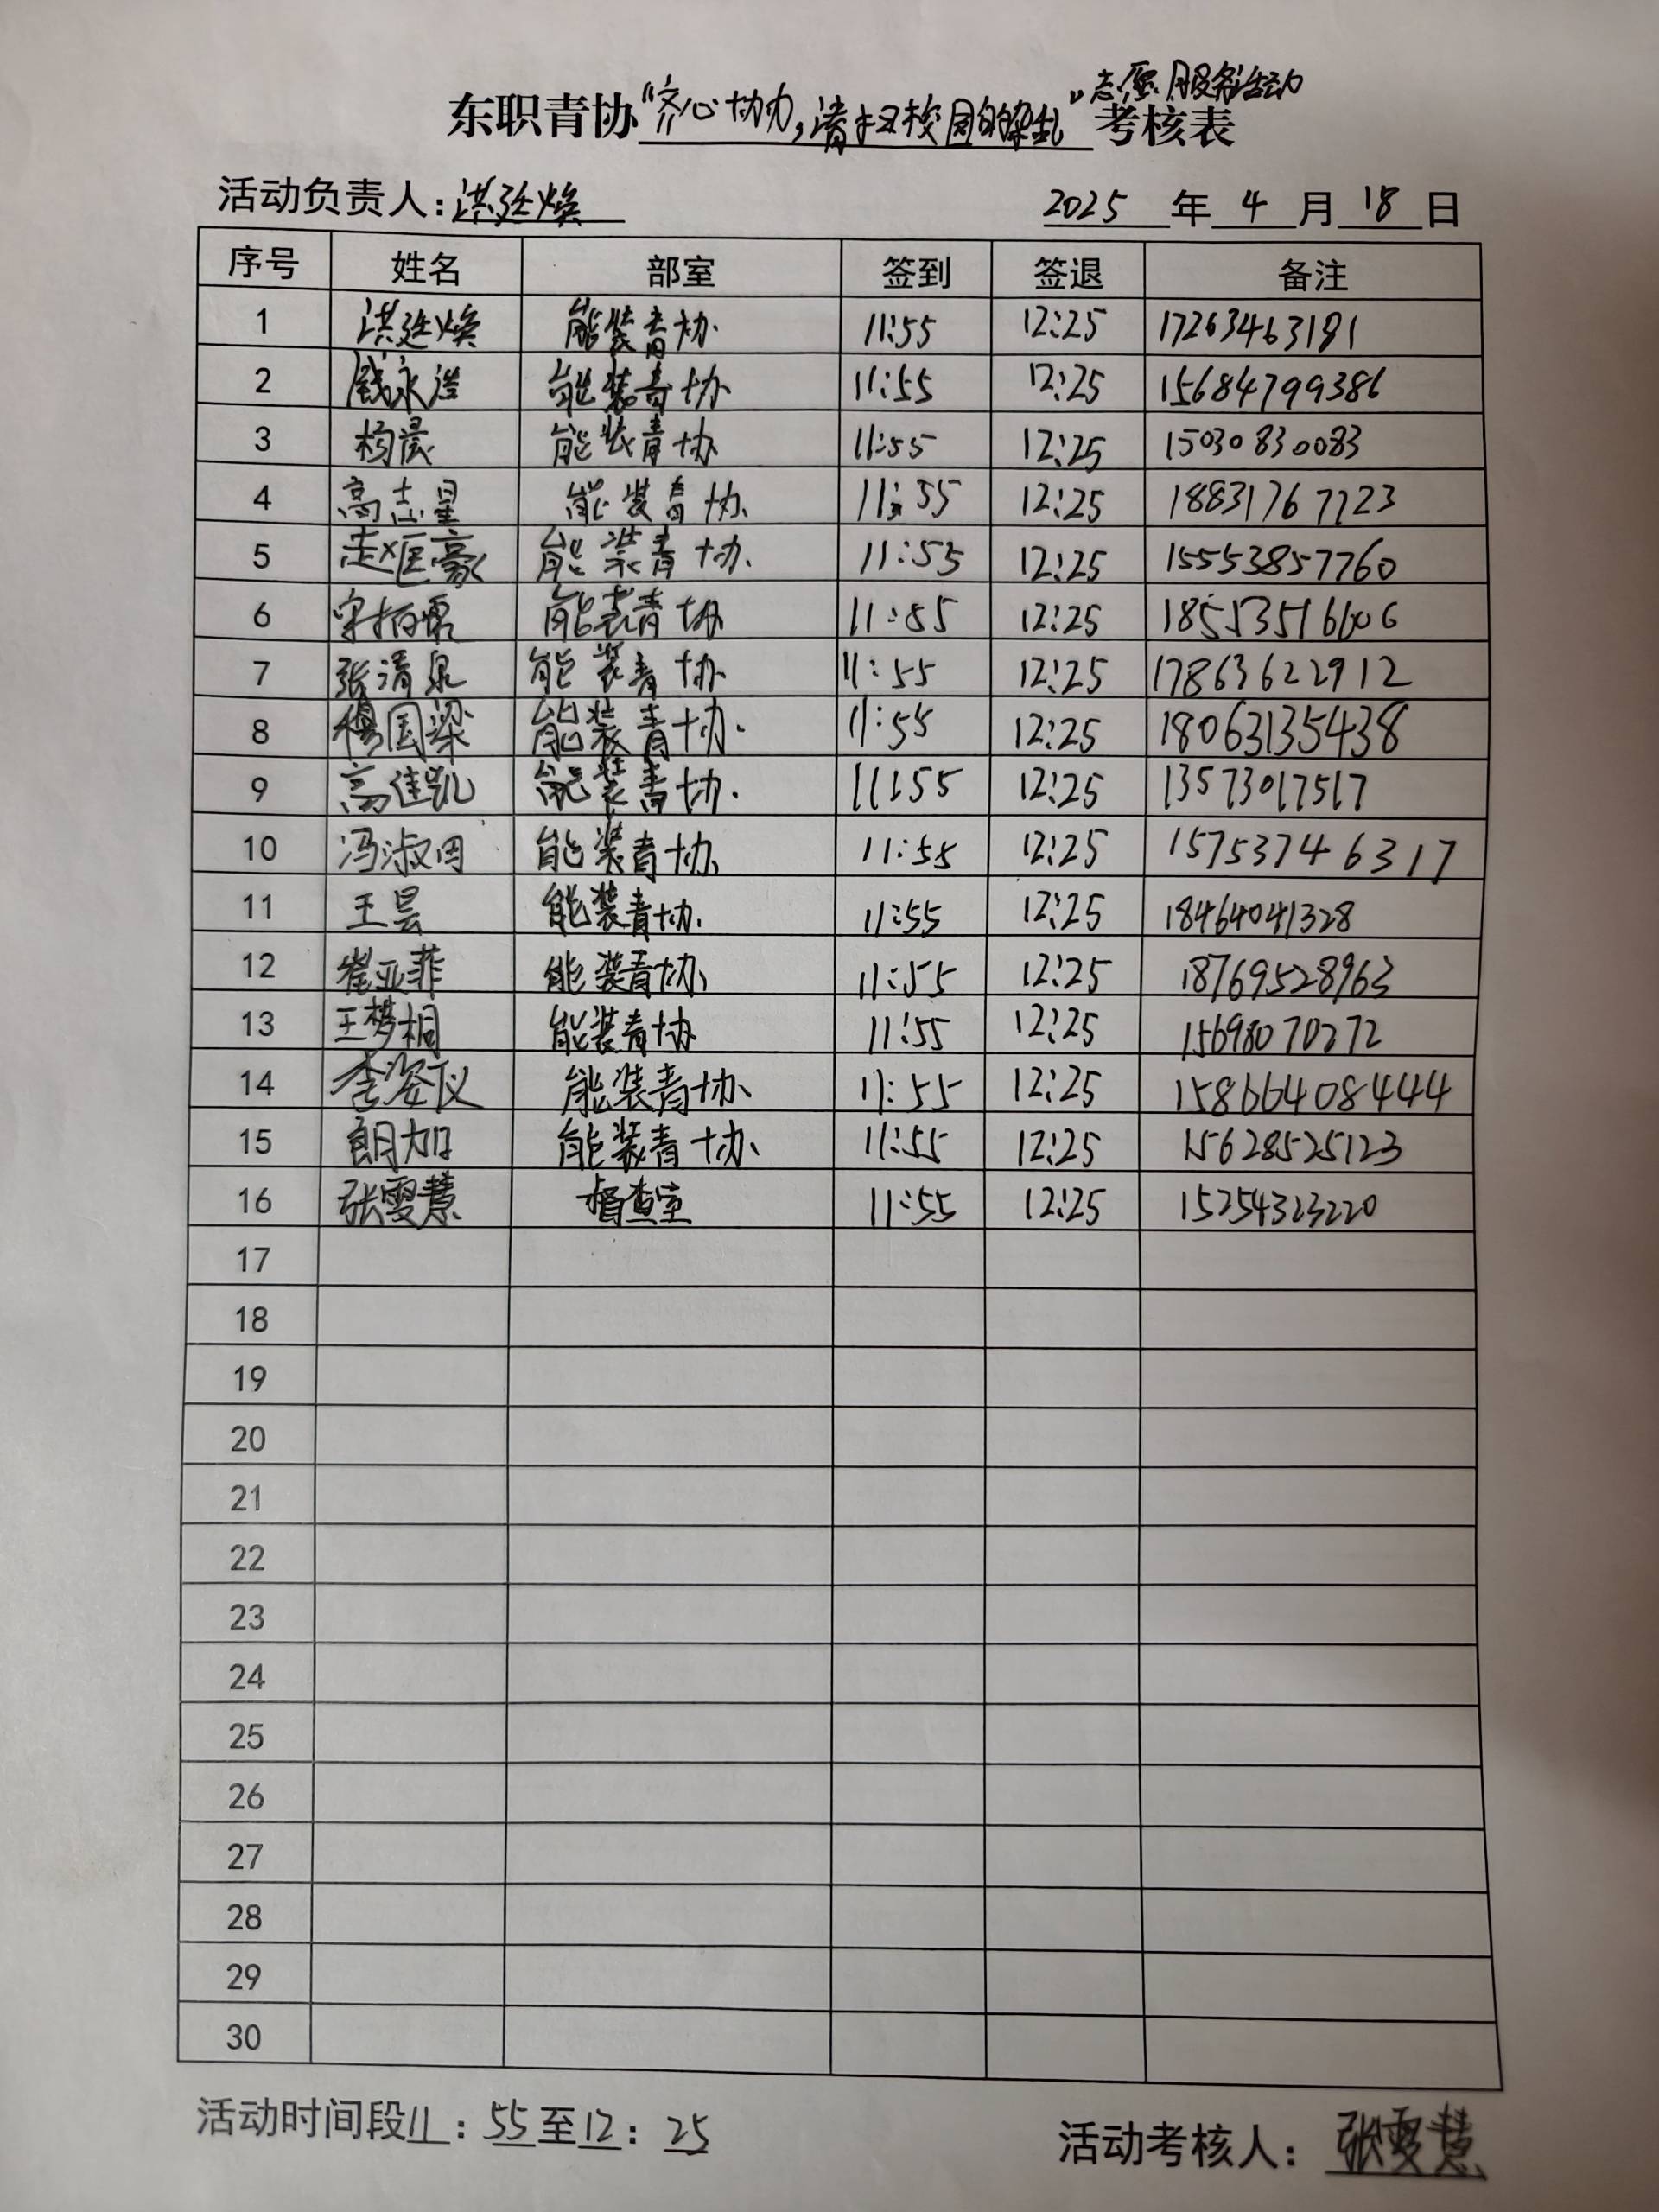 志愿服务活动
东职青协“齐心协力,清扫校园的染乱”考核表
活动负责人:洪延焕 2025年4月18日
序号 姓名 部室 签到 签退 备注
1 洪延焕 能装青协 11:55 12:25 17263463181
2 钱永浩 能装青协 11:55 12:25 15684799386
3 杨晨 能装青协 11:55 12:25 15030830083
4 高志星 能装青协 11:55 12:25 18831767723
5 赵匡豪 能装青协 11:55 12:25 15553857760
6 能装青协 11:55 12:25 18553516606
7 张清泉 能装青协 11:55 12:25 17863622912
8 杨国梁 能装青协 11:55 12:25 18063135438
9 高佳凯 能装青协 11:55 12:25 13573017517
10 冯淑田 能装青协 11:55 12:25 15753746317
11 王昙 能装青协 11:55 12:25 18464041328
12 崔亚菲 能装青协 11:55 12:25 18769528963
13 王梦桐 能装青协 11:55 12:25 15698070272
14 李姿仪 能装青协 11:55 12:25 158664084444
15 朗加 能装青协 11:55 12:25 15628525123
16 张雯慧 督查室 11:55 12:25 15254323220
17
18
19
20
21
22
23
24
25
26
27
28
29
30
活动时间段11:55至12:25 活动考核人:张雯慧